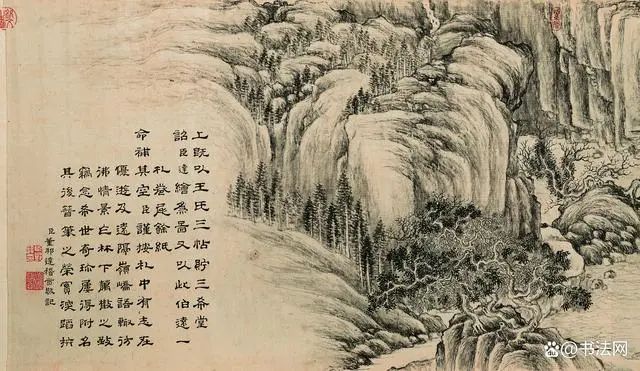 上既以王氏三帖貯三希堂
詔臣達繪為圖又以此伯遠一
札卷尾餘紙
命補其空臣謹按札中有志在
優遊及遠隔嶺嶠語輒彷
彿情景林下蕭散之致
竊念希世奇珍屢得附名
其後簪筆之榮實深蹈抃
臣董邦達稽首敬記
百家号/书法网